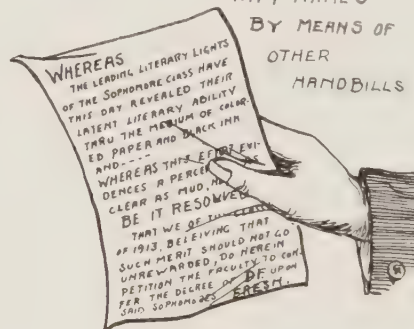 NAMES
BY MEANS OF
OTHER
HANDBILLS
WHEREAS
THE LEADING LITERARY LIGHTS
OF THE SOPHOMORE CLASS HAVE
THIS DAY REVEALED THEIR
LATENT LITERARY ABILITY
THRU THE MEDIUM OF COLOR-
ED PAPER AND BLACK INK
AND----
WHEREAS THIS EFFORT EVI-
DENCES A
CLEAR AS MUD,
BE IT RESOLVED
THAT WE OF THE
OF 1913, BELEIVING THAT
SUCH MERIT SHOULD NOT GO
UNREWARDED, DO HEREIN
PETITION THE FACULTY TO CON-
FER THE DEGREE OF D.F. UPON
SAID SOPHOMORES